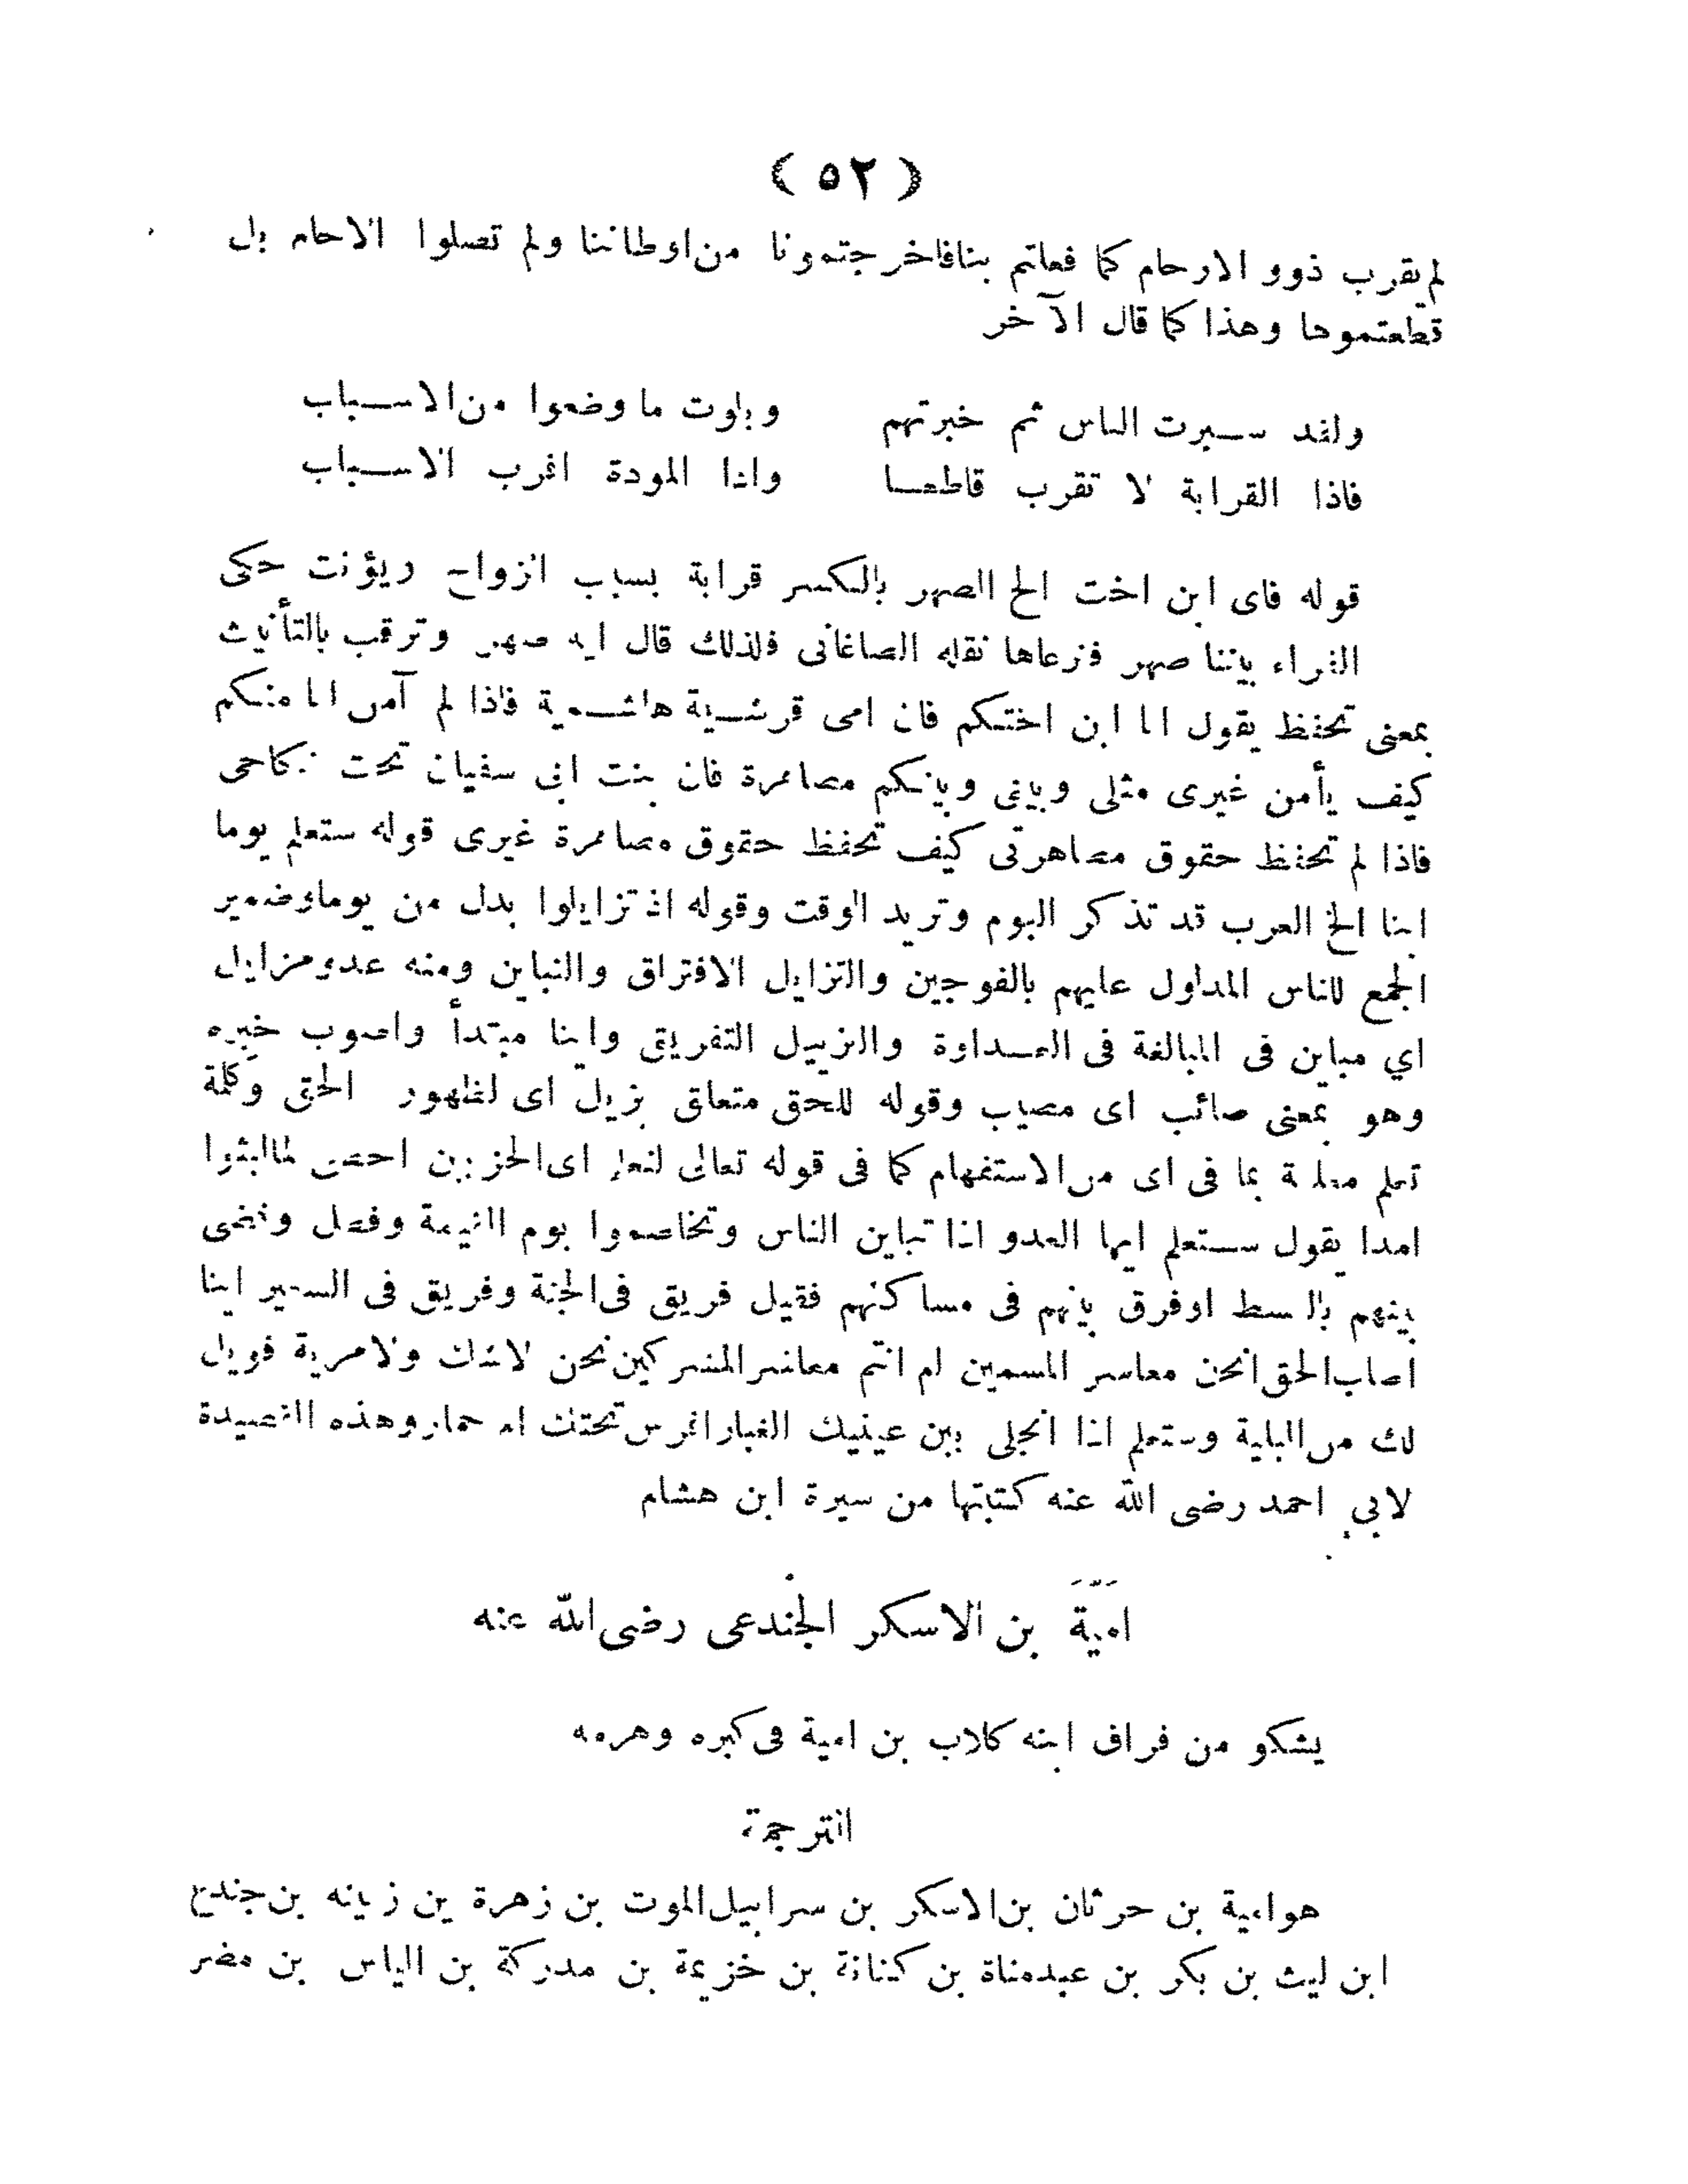 ( ٥٢ )
لم يقرب ذوو الارحام كما فعلتم بنا فاخرجتمونا من اوطاننا ولم تصلوا الارحام بل
قطعتموها وهذا كما قال الآخر
ولقد سبرت الناس ثم خبرتهم وبلوت ما وضعوا من الاسباب
فاذا القرابة لا تقرب قاطعا واذا المودة اقرب الاسباب
قوله فاى ابن اخت الخ الصهر بالكسر قرابة بسبب الزواج ويؤنث حكى
الفراء بيننا صهر فنرعاها نقله الصاغانى فلذلك قال اية صهر وترقب بالتأنيث
بمعنى تحفظ يقول انا ابن اختكم فان امى قرشية هاشمية فاذا لم آمن انا منكم
كيف يأمن غيرى مثلى وبينى وبينكم مصاهرة فان بنت ابى سفيان تحت نكاحى
فاذا لم تحفظ حقوق مصاهرتى كيف تحفظ حقوق مصاهرة غيرى قوله ستعلم يوما
اينا الخ العرب قد تذكر اليوم وتريد الوقت وقوله اذ تزايلوا بدل من يوما وضمير
الجمع للناس المدلول عليهم بالفوجين والتزايل الافتراق والتباين ومنه عدو مزايل
اي مباين فى المبالغة فى العداوة والتزييل التفريق واينا مبتدأ واصوب خبره
وهو بمعنى صائب اى مصيب وقوله للحق متعلق بزيل اى لظهور الحق وكلمة
تعلم معلقة بما فى اى من الاستفهام كما فى قوله تعالى لنعلم اى الحزبين احصى لما لبثوا
امدا يقول ستعلم ايها العدو اذا تباين الناس وتخاصموا يوم القيمة وفصل وقضى
بينهم بالقسط اوفرق بينهم فى مساكنهم فقيل فريق فى الجنة وفريق فى السعير اينا
اصاب الحق انحن معاشر المسمين ام انتم معاشر المشركين نحن لاشك ولامرية فويل
لك من البلية وستعلم اذا انجلى بين عينيك الغبار افرس تحتك ام حمار وهذه القصيدة
لابي احمد رضى الله عنه كتبتها من سيرة ابن هشام
اميَّة بن الاسكر الجُندعى رضى الله عنه
يشكو من فراق ابنه كلاب بن امية فى كبره وهرمه
الترجمة
هو امية بن حرثان بن الاسكر بن سرابيل الموت بن زهرة بن زينه بن جندع
ابن ليث بن بكر بن عبد مناة بن كنانة بن خزيمة بن مدركة بن الياس بن مضر